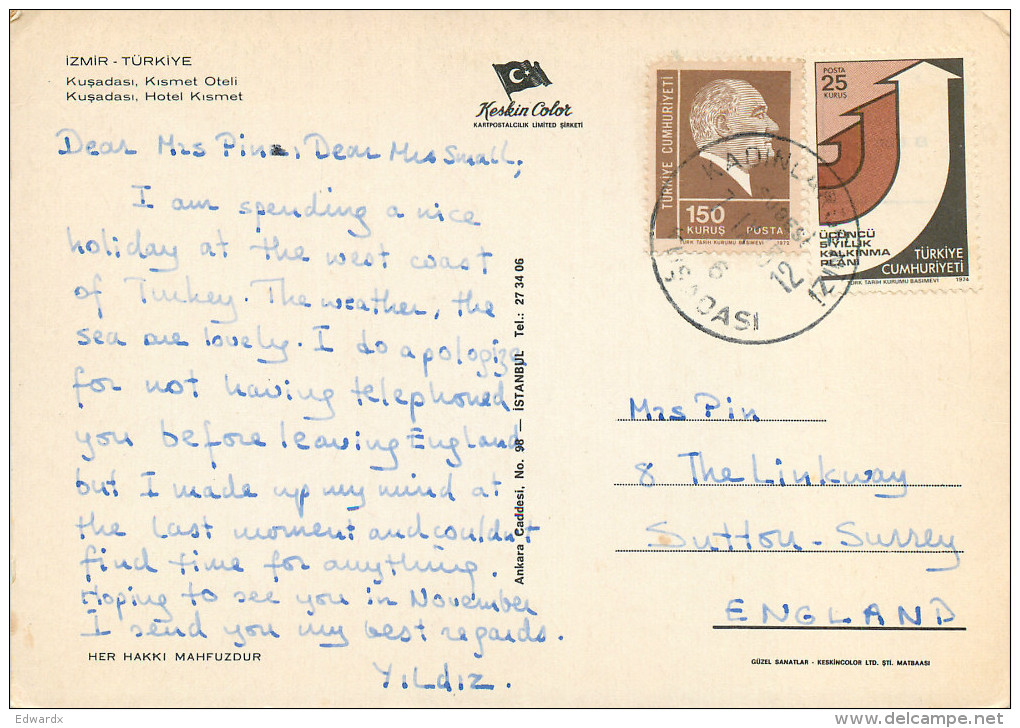 İZMİR - TÜRKİYE
Kuşadası, Kısmet Oteli
Kuşadası, Hotel Kısmet
Keskin Color
KARTPOSTALCILIK LIMITED ŞİRKETİ
Dear Mrs Pin, Dear Mrs Small,
I am spending a nice
holiday at the west coast
of Turkey. The weather, the
sea are lovely. I do apologize
for not having telephoned
you before leaving England
but I made up my mind at
the last moment and couldn't
find time for anything.
Hoping to see you in November
I send you my best regards.
Yıldız.
HER HAKKI MAHFUZDUR
Ankara Caddesi, No. 98 — İSTANBUL Tel.: 27 34 06
TÜRKİYE CUMHURİYETİ
150
KURUŞ POSTA
TÜRK TARİH KURUMU BASIMEVİ 1975
POSTA
25
KURUŞ
ÜÇÜNCÜ
5 YILLIK
KALKINMA
PLANI
TÜRKİYE
CUMHURİYETİ
TÜRK TARİH KURUMU BASIMEVİ 1974
KUŞADASI
12
İZMİR
Mrs Pin
8 The Linkway
Sutton - Surrey
ENGLAND
GÜZEL SANATLAR - KESKİNCOLOR LTD. ŞTİ. MATBAASI
Edwardx